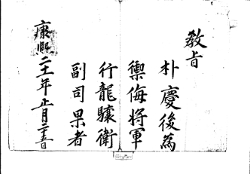 教旨
朴慶後為
禦侮將軍
行龍驤衛
副司果者
康熙二十一年正月二十五日